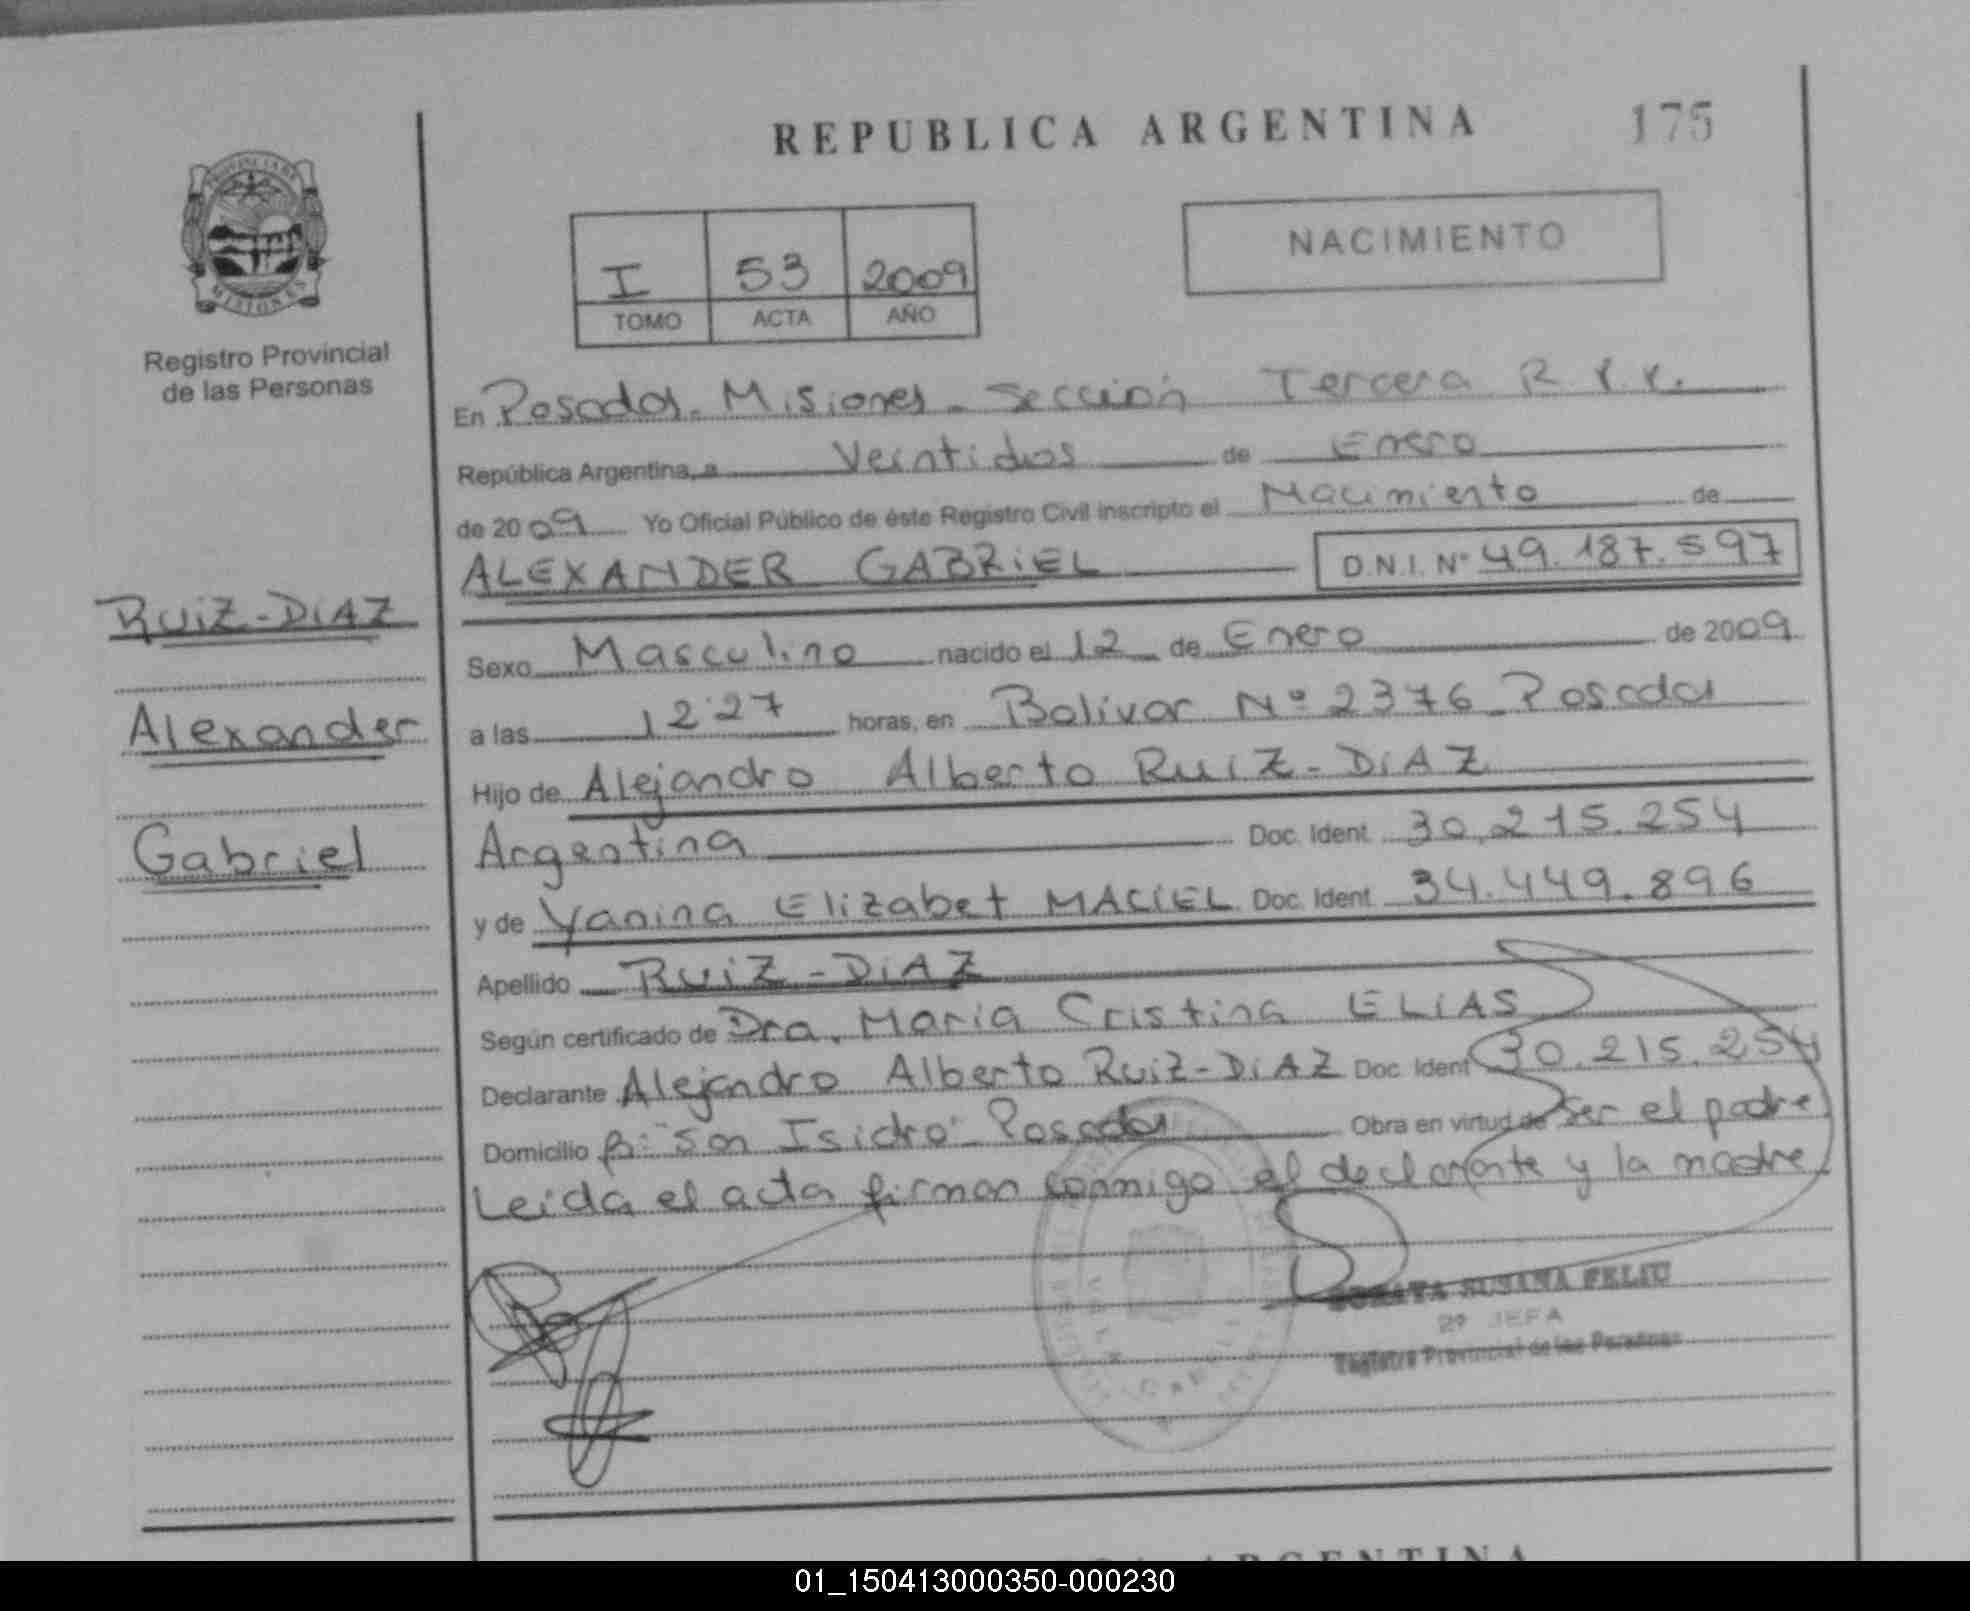 REPUBLICA ARGENTINA
175
PROVINCIA DE
MISIONES
Registro Provincial
de las Personas
I 53 2009
TOMO ACTA AÑO
NACIMIENTO
En Posadas. Misiones - Sección Tercera R.
República Argentina, a Veintidos de Enero
de 2009 Yo Oficial Público de éste Registro Civil inscripto el Nacimiento de
ALEXANDER GABRIEL D.N.I. Nº 49.187.597
RUIZ-DIAZ
Alexander
Gabriel
Sexo Masculino nacido el 12 de Enero de 2009
a las 12:27 horas, en Bolivar Nº 2376 - Posadas
Hijo de Alejandro Alberto RUIZ-DIAZ
Argentina Doc. Ident 30.215.254
y de Yanina Elizabet MACIEL Doc. Ident 34.449.896
Apellido RUIZ-DIAZ
Según certificado de Dra. Maria Cristina ELIAS
Declarante Alejandro Alberto RUIZ-DIAZ Doc. Ident 30.215.254
Domicilio Bº "San Isidro" Posadas Obra en virtud de Ser el padre
Leida el acta firman conmigo el declarante y la madre
SUSANA FELIU
2º JEFA
Registro Provincial de las Personas
ARGENTINA
01_150413000350-000230